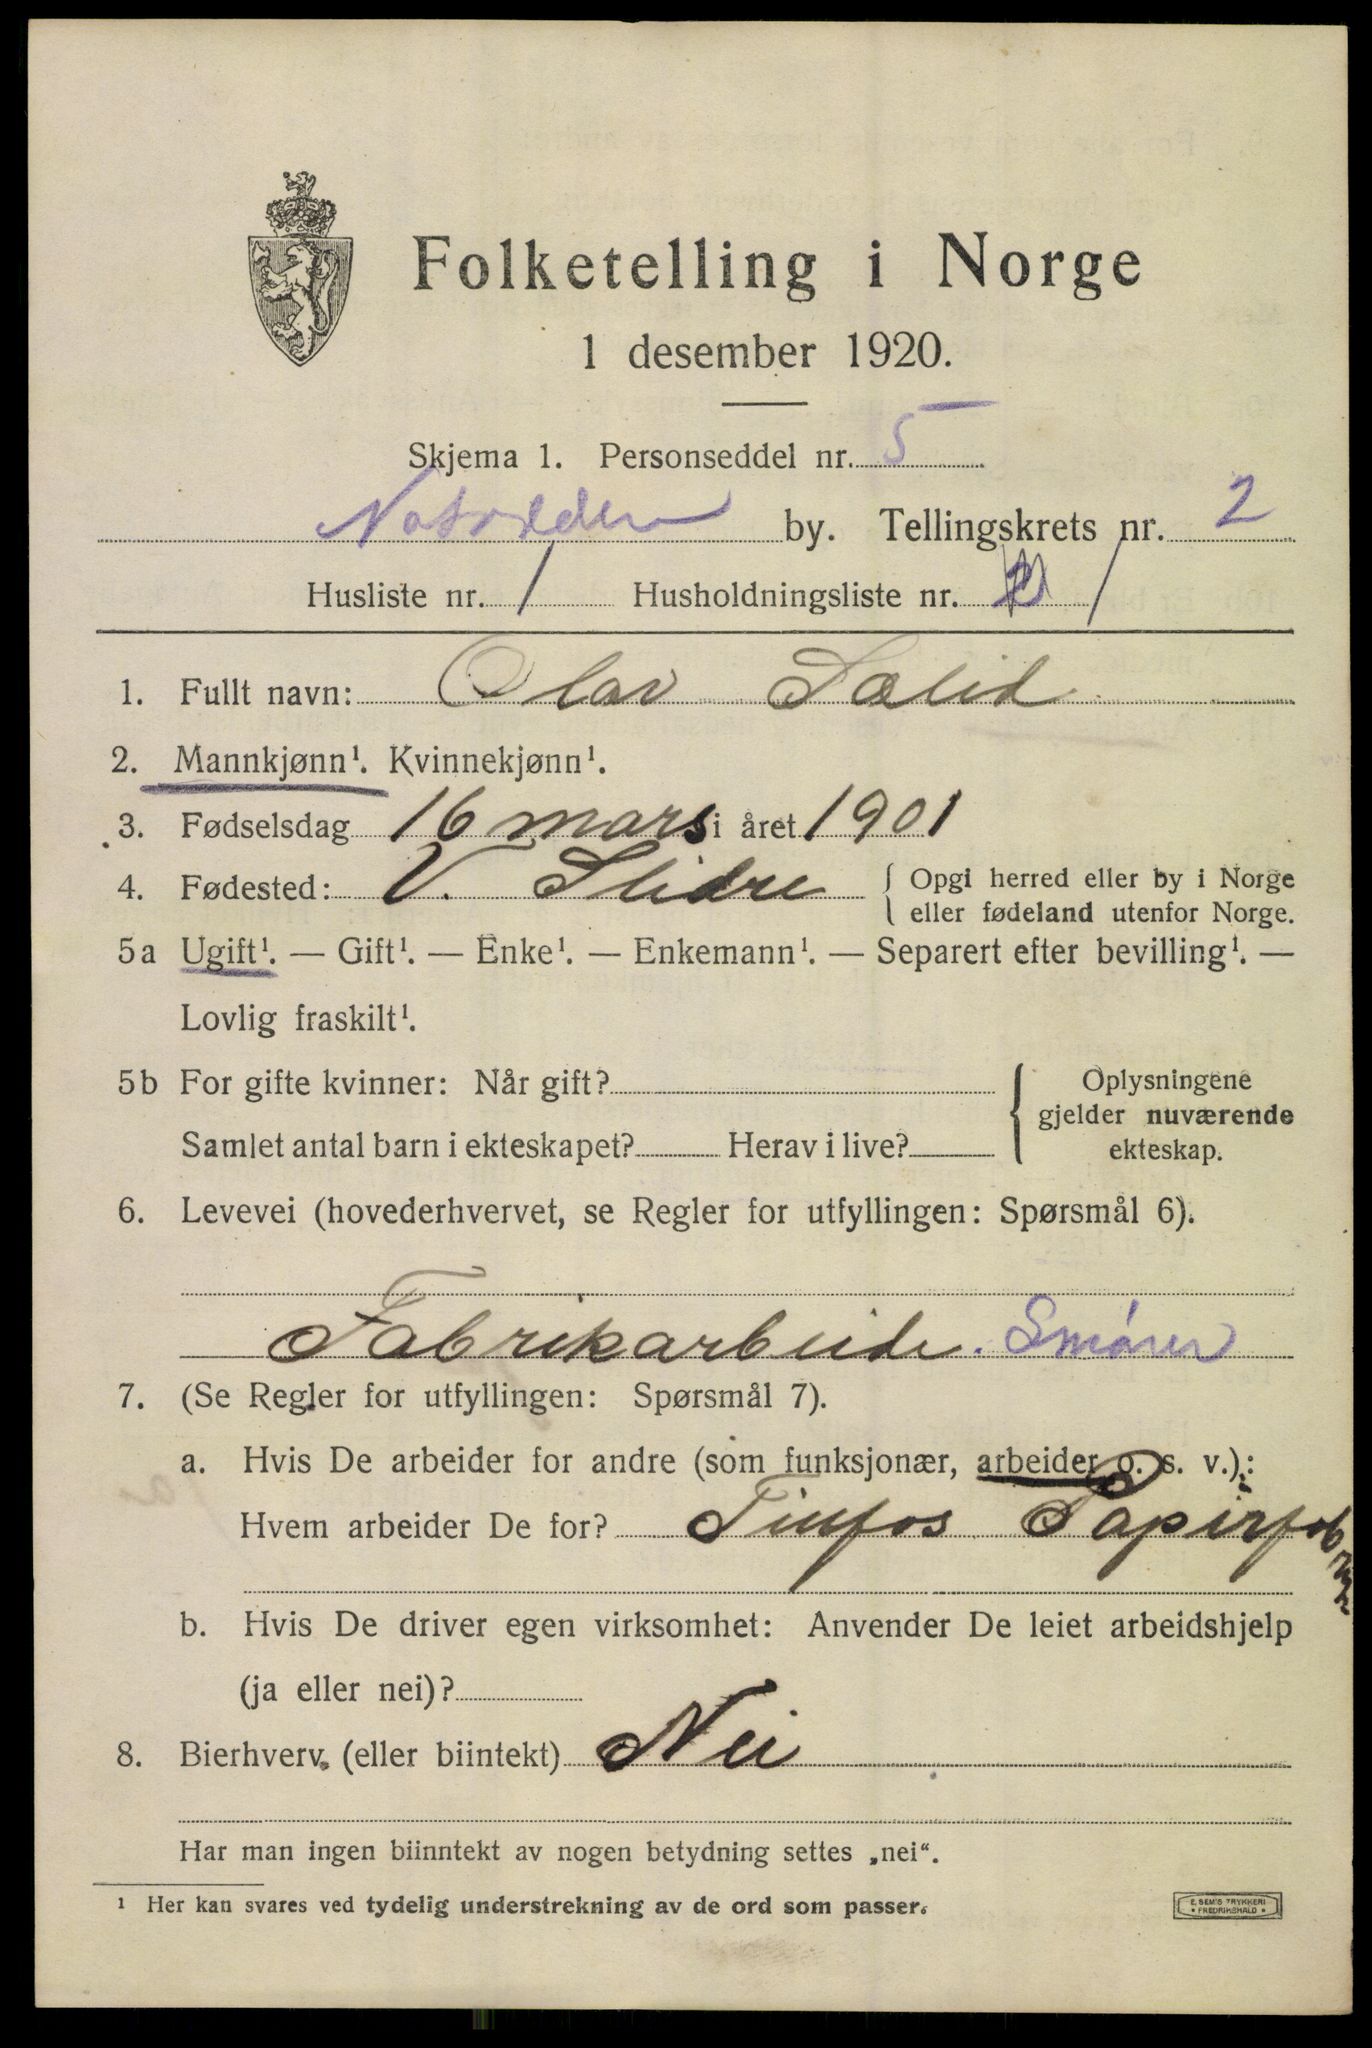 Folketelling i Norge
1 desember 1920.
Skjema 1. Personseddel nr. 5
Notodden by. Tellingskrets nr. 2
Husliste nr. 1 Husholdningsliste nr. 1
1. Fullt navn: Olav Sælid
2. Mannkjønn¹. Kvinnekjønn¹.
3. Fødselsdag 16 mars i året 1901
4. Fødested: V. Slidre { Opgi herred eller by i Norge
eller fødeland utenfor Norge.
5a Ugift¹. — Gift¹. — Enke¹. — Enkemann¹. — Separert efter bevilling¹. —
Lovlig fraskilt¹.
5b For gifte kvinner: Når gift? { Oplysningene
gjelder nuværende
Samlet antal barn i ekteskapet? Herav i live? ekteskap.
6. Levevei (hovederhvervet, se Regler for utfyllingen: Spørsmål 6).
Fabrikarbeide. Smører
7. (Se Regler for utfyllingen: Spørsmål 7).
a. Hvis De arbeider for andre (som funksjonær, arbeider o. s. v.):
Hvem arbeider De for? Tinfos Papirfab
b. Hvis De driver egen virksomhet: Anvender De leiet arbeidshjelp
(ja eller nei)?
8. Bierhverv. (eller biintekt) Nei
Har man ingen biinntekt av nogen betydning settes „nei“.
¹ Her kan svares ved tydelig understrekning av de ord som passer.
E. SEM'S TRYKKERI
• FREDRIKSHALD •